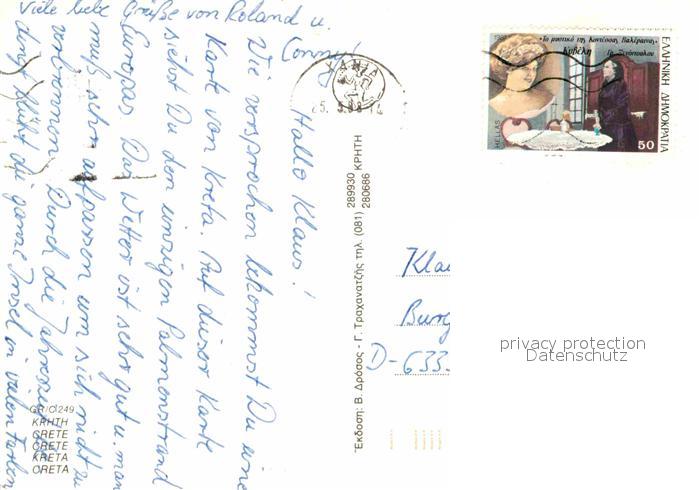 Hallo Klaus!
Wie versprochen bekommst Du eine
Karte von Kreta. Auf dieser Karte
siehst Du den einzigen Palmenstrand
Europas. Das Wetter ist sehr gut u. man
muß schon aufpassen um sich nicht zu
verbrennen. Durch die Jahreszeit
blüht die ganze Insel in vielen Farben
Viele liebe Grüße von Roland u.
Conny!
ΧΑΝΙΑ
«Το μυστικό της Κοντέσσας Βαλέραινας»
Κυβέλη
Γρ. Ξενόπουλου
ΕΛΛΗΝΙΚΗ ΔΗΜΟΚΡΑΤΙΑ
HELLAS
50
Έκδοση: Β. Δρόσος - Γ. Τραχανατζής τηλ. (081) 289930 ΚΡΗΤΗ
280686
Kla
Burg
D-633
privacy protection
Datenschutz
GR/C 249
ΚΡΗΤΗ
CRETE
CRETE
KRETA
CRETA